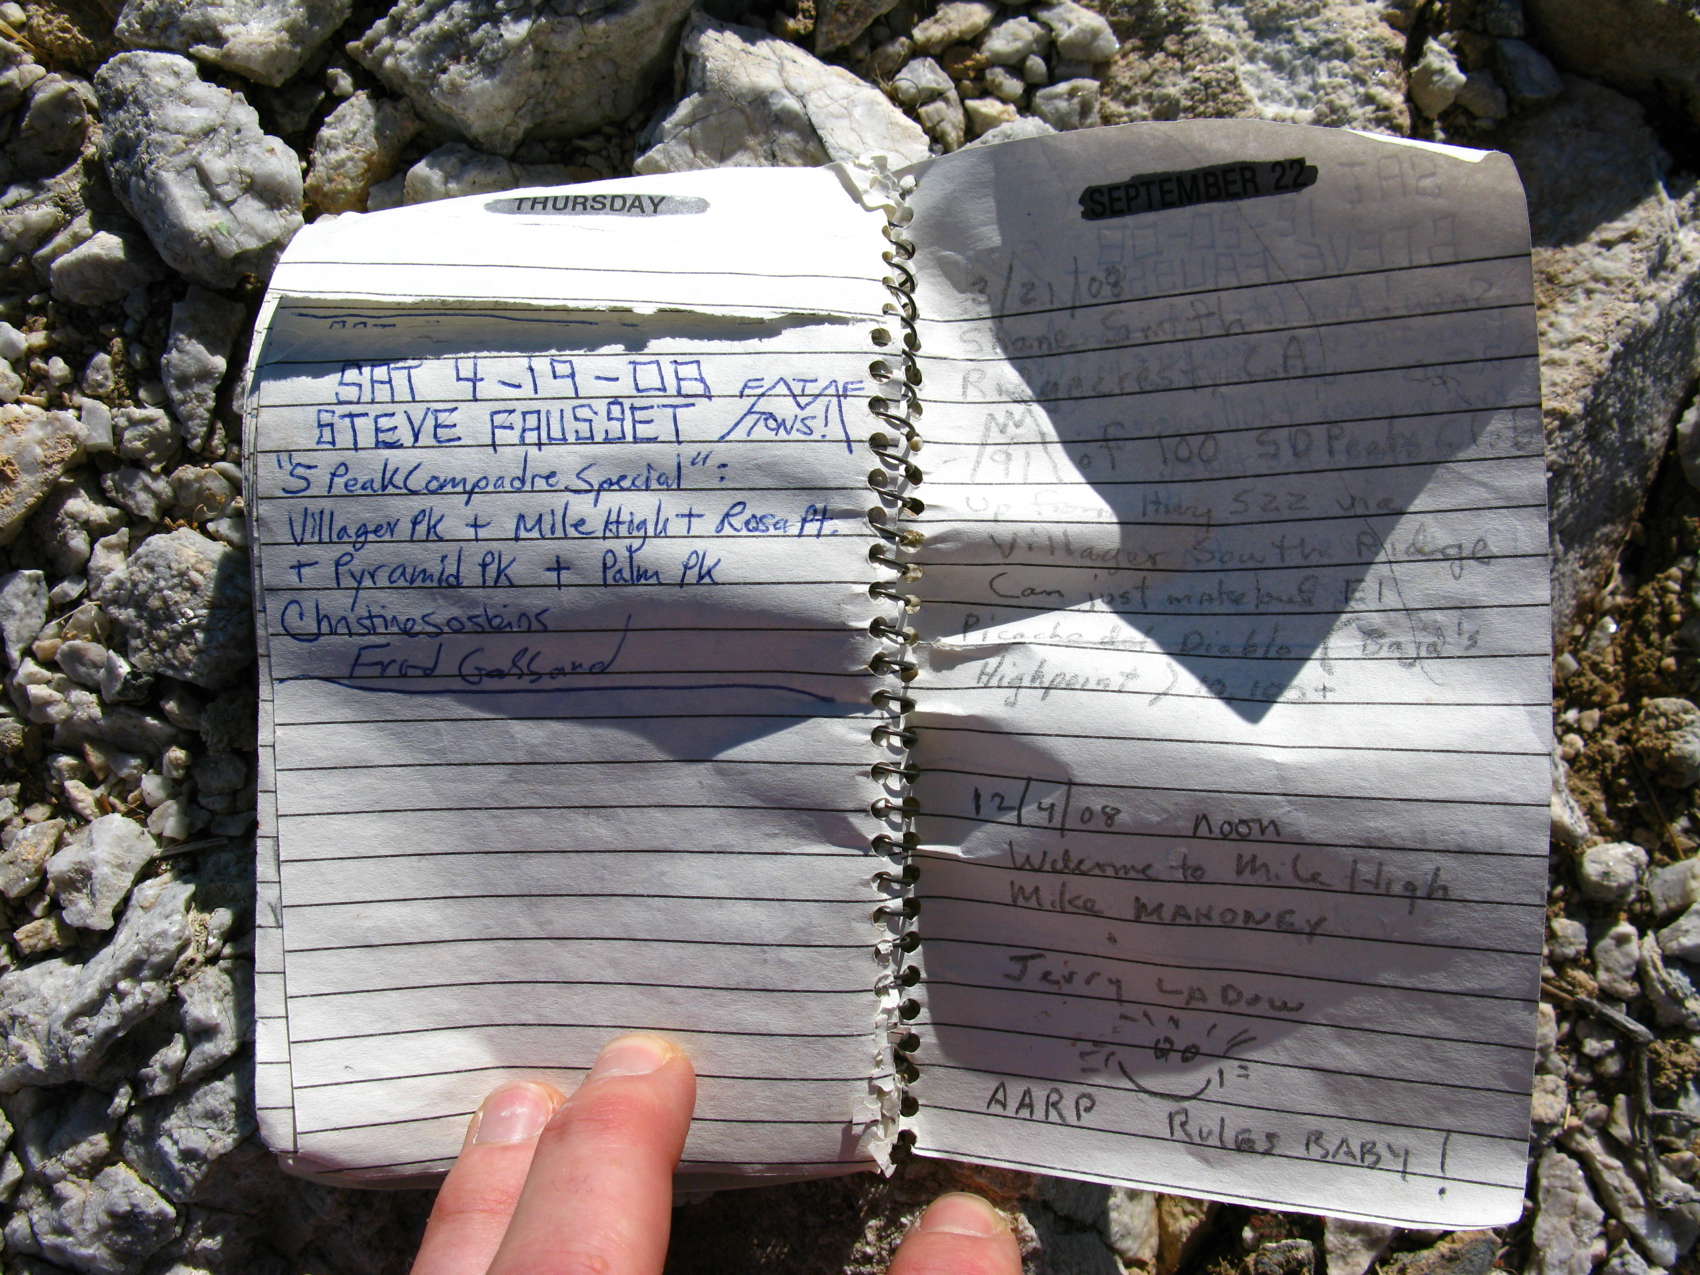 THURSDAY
SAT 4-19-08
STEVE FAUSSET
TONS!
"5 Peak Compadre Special":
Villager Pk + Mile High + Rosa Pt.
+ Pyramid Pk + Palm Pk
Fred
SEPTEMBER 22
/21/08
Shane Smith
Ridgecrest, CA
91 of 100 SD Peaks Club
up from Hwy S22 via
Villager South Ridge
Can just make out El
Picacho del Diablo (Baja's
Highpoint)
12/4/08 noon
Welcome to Mile High
Mike MAHONEY
Jerry LADOW
AARP RULES BABY!